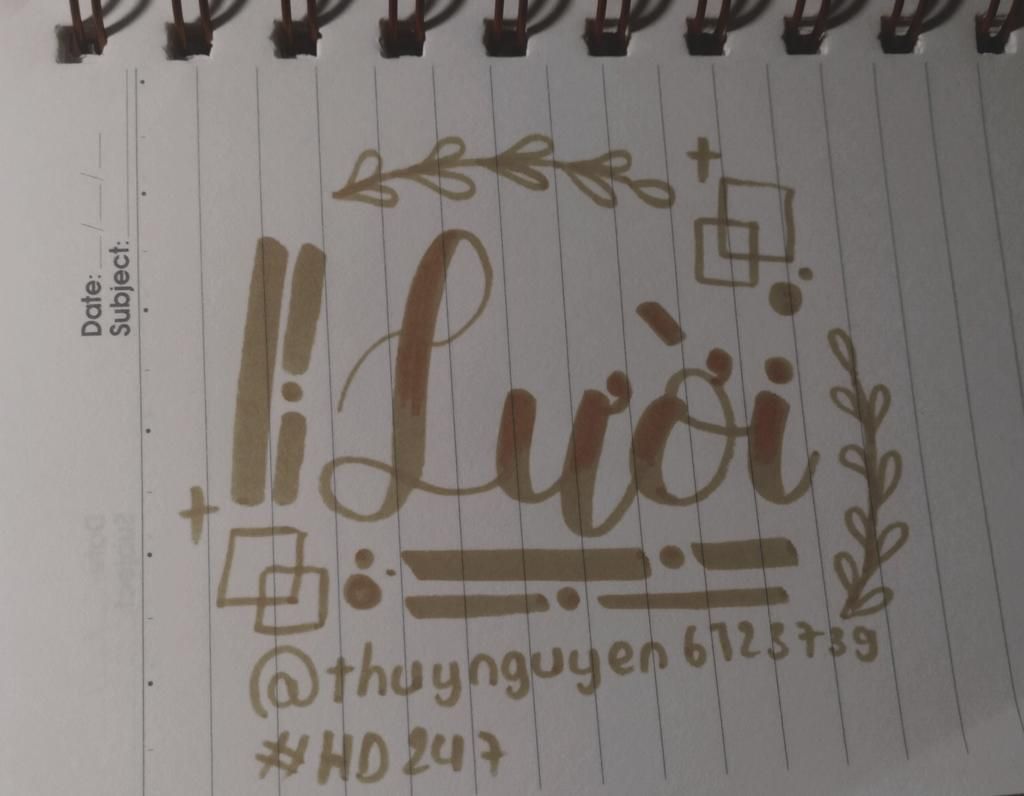 Date: __/__/__
Subject:
Lười
@thuynguyen6123739
#HD247